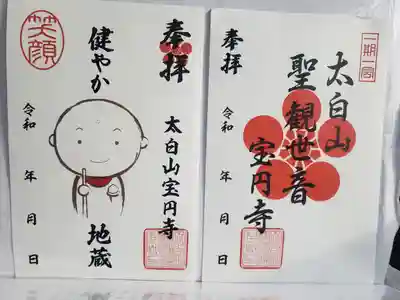 笑顔
奉拝
健やか
地蔵
太白山宝円寺
令和 年 月 日
一期一会
太白山
聖觀世音
宝円寺
奉拝
令和 年 月 日